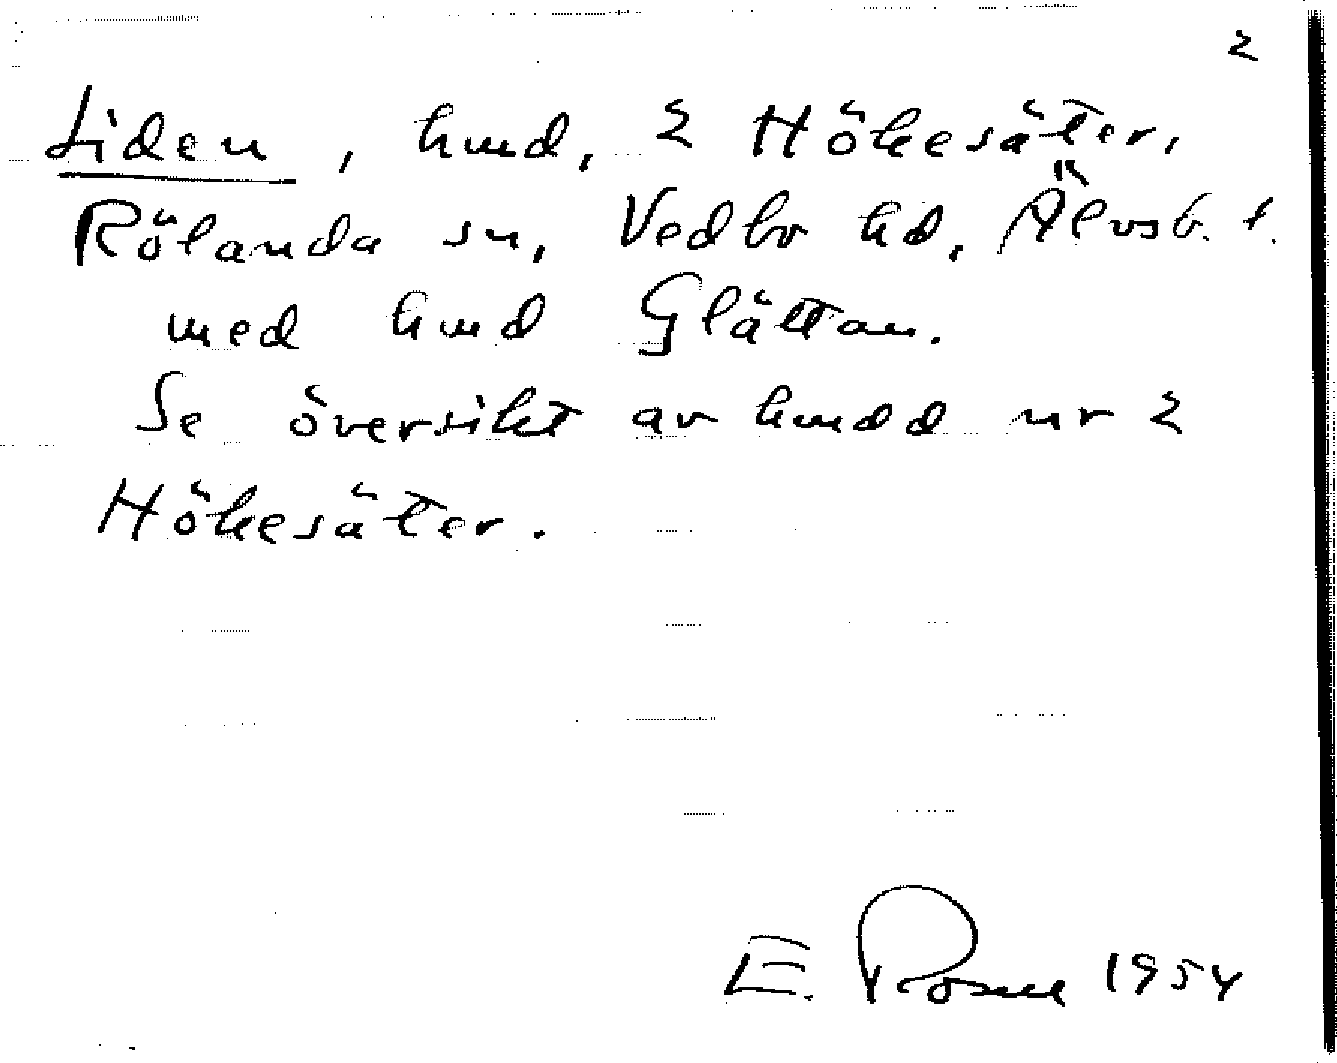 2
Liden, hmd, 2 Hökesäter,
Rölanda sn, Vedbo hd, Älvsb. l.
med hmd Glättan.
Se översikt av hmdd nr 2
Hökesäter.
E. 1954